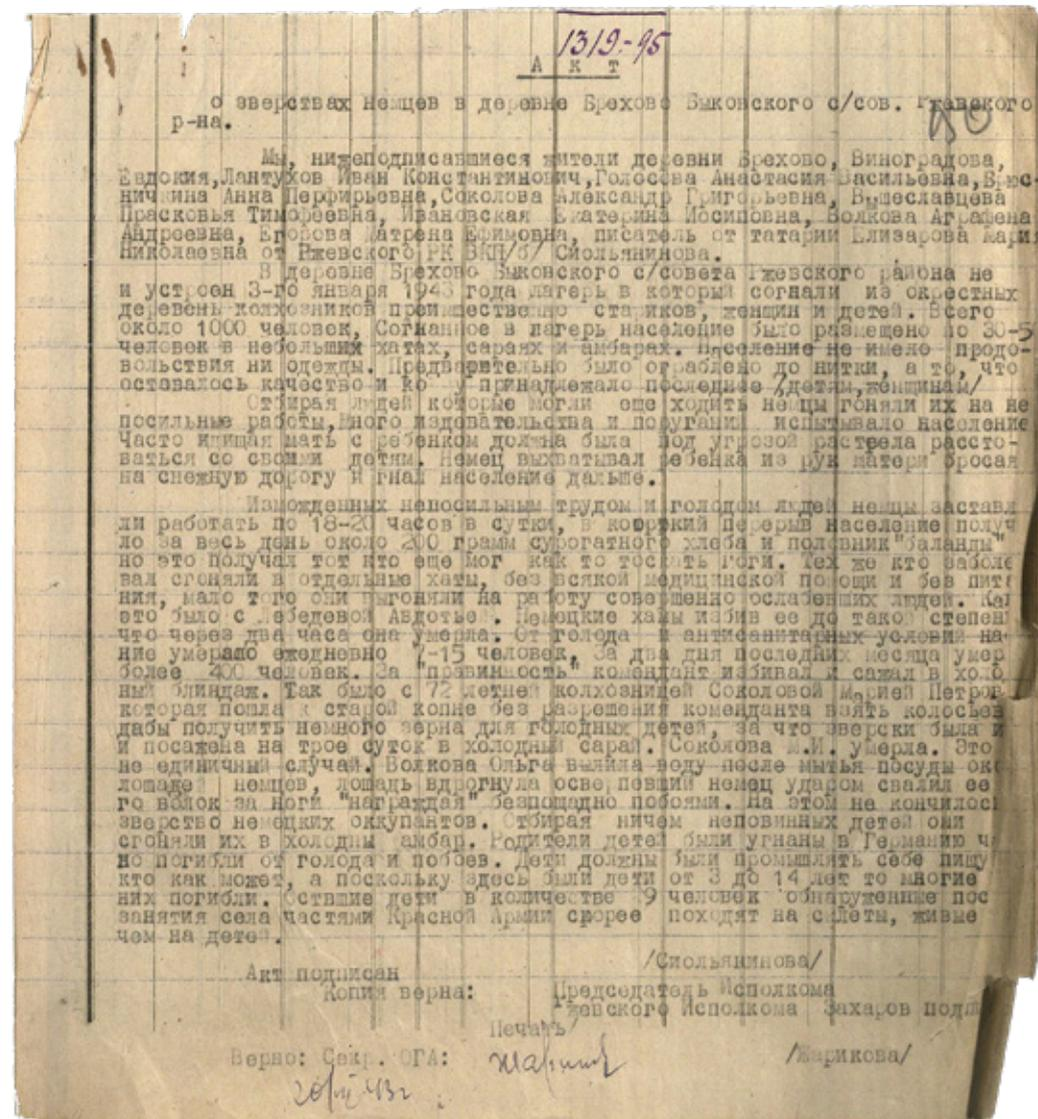 1319.-95
А к т
о зверствах немцев в деревне Брехово Быковского с/сов. Ржевского
р-на.
Мы, нижеподписавшиеся жители деревни Брехово, Виноградова,
Евдокия,Лантухов Иван Константинович,Голосова Анастасия Васильевна,Брюс-
ничкина Анна Перфирьевна,Соколова Александр Григорьевна, Вышеславцева
Прасковья Тимофеевна, Ивановская Екатерина Иосиповна, Волкова Аграфена
Андреевна, Егорова Матрена Ефимовна, писатель от татарии Елизарова Мария
Николаевна от Ржевского РК ВКП/б/ Смольянинова.
В деревне Брехово Быковского с/совета Ржевского района не
и устроен 3-го января 1943 года лагерь в который согнали из окрестных
деревень колхозников преимшественно стариков, женщин и детей. Всего
около 1000 человек, Согнанное в лагерь население было размещено по 30-5
человек в небольших хатах, сараях и амбарах. Население не имело продо-
вольствия ни одежды. Предварительно было ограблено до нитки, а то, что
оставалось качество и ко у принадлежало последнее /детям,женщинам/
Отбирая людей которые могли еще ходить немцы гоняли их на не
посильные работы,много издевательства и поругания испытывало население
Часто идищая мать с ребенком должна была под угрозой растрела рассто-
ваться со своими детям. Немец выхватывал ребенка из рук матери бросая
на снежную дорогу и гнал население дальше.
Изможденных непосильным трудом и голодом людей немцы заставл
ли работать по 18-20 часов в сутки, в коюрткий перерыв население получ
ло за весь день около 200 грамм сурогатного хлеба и половник"баланды"
но это получал тот кто еще мог как то тоскать ноги. Тех же кто заболе
вал сгоняли в отдельные хаты, без всякой медицинской помощи и без пита
ния, мало того они выгоняли на работу совершенно ослабевших людей. Как
это было с Лебедевой Авдотьей. Немецкие хамы избив ее до такой степени
что через два часа она умерла. От голода и антисанитарных условий на
ние умерало ежедневно 7-15 человек, За два дня последних месяца умер
более 400 человек. За "правинность" комендант избивал и сажал в холо
ный блиндаж. Так было с 72 летней колхозницей Соколовой Марией Петров
которая пошла к старой копне без разрешения коменданта взять колосьев
дабы получить немного зерна для голодных детей, за что зверски была и
и посажена на трое суток в холодный сарай. Соколова М.И. умерла. Это
не единичный случай. Волкова Ольга вылила воду после мытья посуды око
лошадей немцев, лошадь вдрогнула освере певший немец ударом свалил ее
го волок за ноги "награждая" безпощадно побоями. На этом не кончилось
зверство немецких оккупантов. Отбирая ничем неповинных детей они
сгоняли их в холодны амбар. Родители детей были угнаны в Германию ч
но погибли от голода и побоев. Дети должны были промышлять себе пищу
кто как может, а поскольку здесь были дети от 3 до 14 лет то многие
них погибли. Оствшие дети в количестве 9 человек обнаруженные пос
занятия села частями Красной Армии скорее походят на скелеты, живые
чем на детей.
Акт подписан /Смольянинова/
Копия верна: Председатель Исполкома
Ржевского Исполкома Захаров подп
Печать/
Верно: Секр. ОГА: /Жарикова/